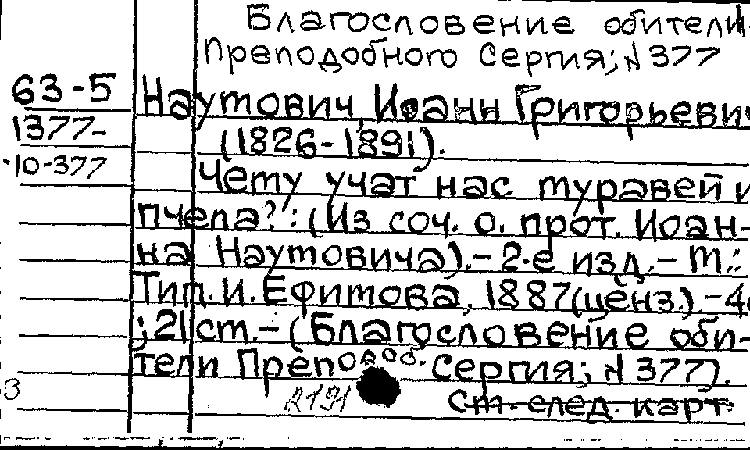 Благословение обители
Преподобного Сергия; № 377
63-5
Наутович, Иоанн Григорьевич
1377-
(1826-1891).
10-377
Чему учат нас муравей и
пчела?: (Из соч. о. прот. Иоан-
на Наутовича).- 2-е изд.- М.:
Тип. И. Ефимова, 1887(ценз.).-
; 21 см.- (Благословение оби-
тели Преподоб. Сергия; № 377).
2191
См. след. карт
3